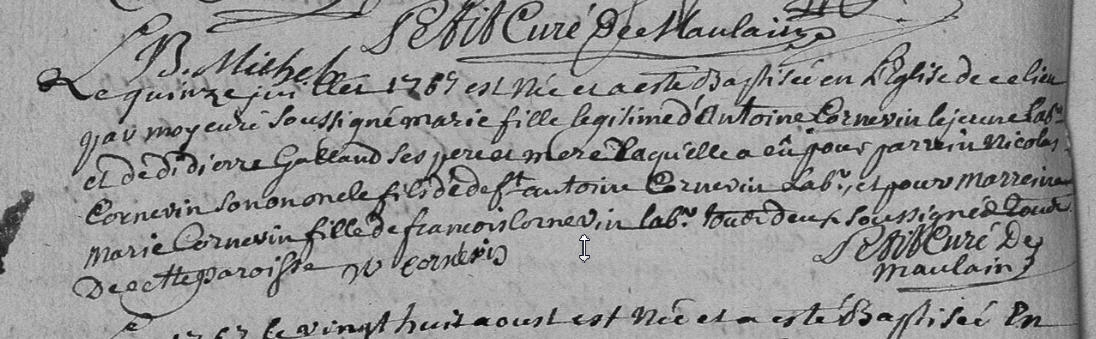 Petit Curé De Maulain
B. Michel
Le quinze juillet 1767 est Née et a esté Baptisée en L'Eglise de ce lieu
par moy curé soussigné marie fille legitime d'Antoine Cornevin le jeune Labr
et de didierre Galland ses pere et mere Laquelle a eü pour parrein Nicolas
Cornevin son oncle fils de deft antoine Cornevin Labr, et pour marreine
marie Cornevin fille de francois Cornevin labr tous deux soussignés tous
De cette paroisse N Cornevin
Petit Curé De
maulain
1767 le vingt huit aoust est Née et a esté Baptisée En